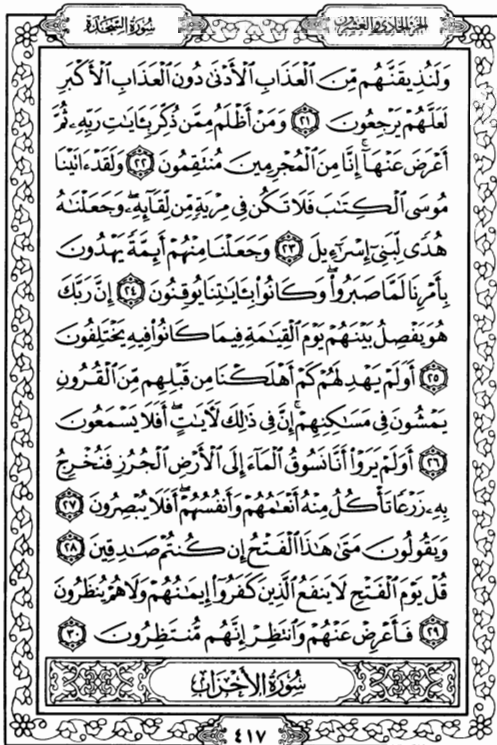 سُورَةُ السَّجْدَةِ
الجزء الحادي والعشرون
وَلَنُذِيقَنَّهُم مِّنَ ٱلْعَذَابِ ٱلْأَدْنَىٰ دُونَ ٱلْعَذَابِ ٱلْأَكْبَرِ
لَعَلَّهُمْ يَرْجِعُونَ ٢١ وَمَنْ أَظْلَمُ مِمَّن ذُكِّرَ بِـَٔايَـٰتِ رَبِّهِۦ ثُمَّ
أَعْرَضَ عَنْهَآ ۚ إِنَّا مِنَ ٱلْمُجْرِمِينَ مُنتَقِمُونَ ٢٢ وَلَقَدْ ءَاتَيْنَا
مُوسَى ٱلْكِتَـٰبَ فَلَا تَكُن فِى مِرْيَةٍ مِّن لِّقَآئِهِۦ ۖ وَجَعَلْنَـٰهُ
هُدًى لِّبَنِىٓ إِسْرَٰٓءِيلَ ٢٣ وَجَعَلْنَا مِنْهُمْ أَئِمَّةً يَهْدُونَ
بِأَمْرِنَا لَمَّا صَبَرُوا۟ ۖ وَكَانُوا۟ بِـَٔايَـٰتِنَا يُوقِنُونَ ٢٤ إِنَّ رَبَّكَ
هُوَ يَفْصِلُ بَيْنَهُمْ يَوْمَ ٱلْقِيَـٰمَةِ فِيمَا كَانُوا۟ فِيهِ يَخْتَلِفُونَ
٢٥ أَوَلَمْ يَهْدِ لَهُمْ كَمْ أَهْلَكْنَا مِن قَبْلِهِم مِّنَ ٱلْقُرُونِ
يَمْشُونَ فِى مَسَـٰكِنِهِمْ ۚ إِنَّ فِى ذَٰلِكَ لَـَٔايَـٰتٍ ۖ أَفَلَا يَسْمَعُونَ
٢٦ أَوَلَمْ يَرَوْا۟ أَنَّا نَسُوقُ ٱلْمَآءَ إِلَى ٱلْأَرْضِ ٱلْجُرُزِ فَنُخْرِجُ
بِهِۦ زَرْعًا تَأْكُلُ مِنْهُ أَنْعَـٰمُهُمْ وَأَنفُسُهُمْ ۖ أَفَلَا يُبْصِرُونَ ٢٧
وَيَقُولُونَ مَتَىٰ هَـٰذَا ٱلْفَتْحُ إِن كُنتُمْ صَـٰدِقِينَ ٢٨
قُلْ يَوْمَ ٱلْفَتْحِ لَا يَنفَعُ ٱلَّذِينَ كَفَرُوٓا۟ إِيمَـٰنُهُمْ وَلَا هُمْ يُنظَرُونَ
٢٩ فَأَعْرِضْ عَنْهُمْ وَٱنتَظِرْ إِنَّهُم مُّنتَظِرُونَ ٣٠
سُورَةُ الأَحْزَابِ
٤١٧